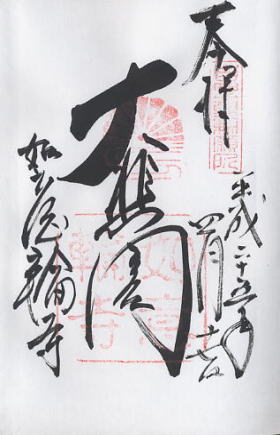 奉拝
平成二十五年
四月
大悲閣
如意輪寺